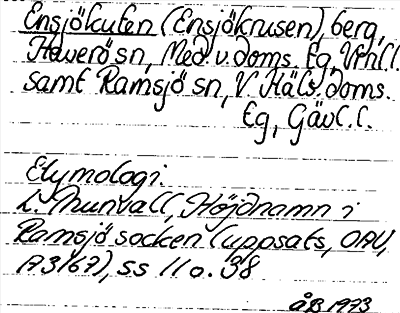 Ensjökuten (Ensjökrusen), berg,
Haverö sn, Med. v. doms. tg, Vnl l.
samt Ramsjö sn, V. Häls. doms.
tg, Gävl. l.
Etymologi.
L. Thunvall, Höjdnamn i
Ramsjö socken (uppsats, OAU,
A3167), ss 11 o. 38
ÅB 1973